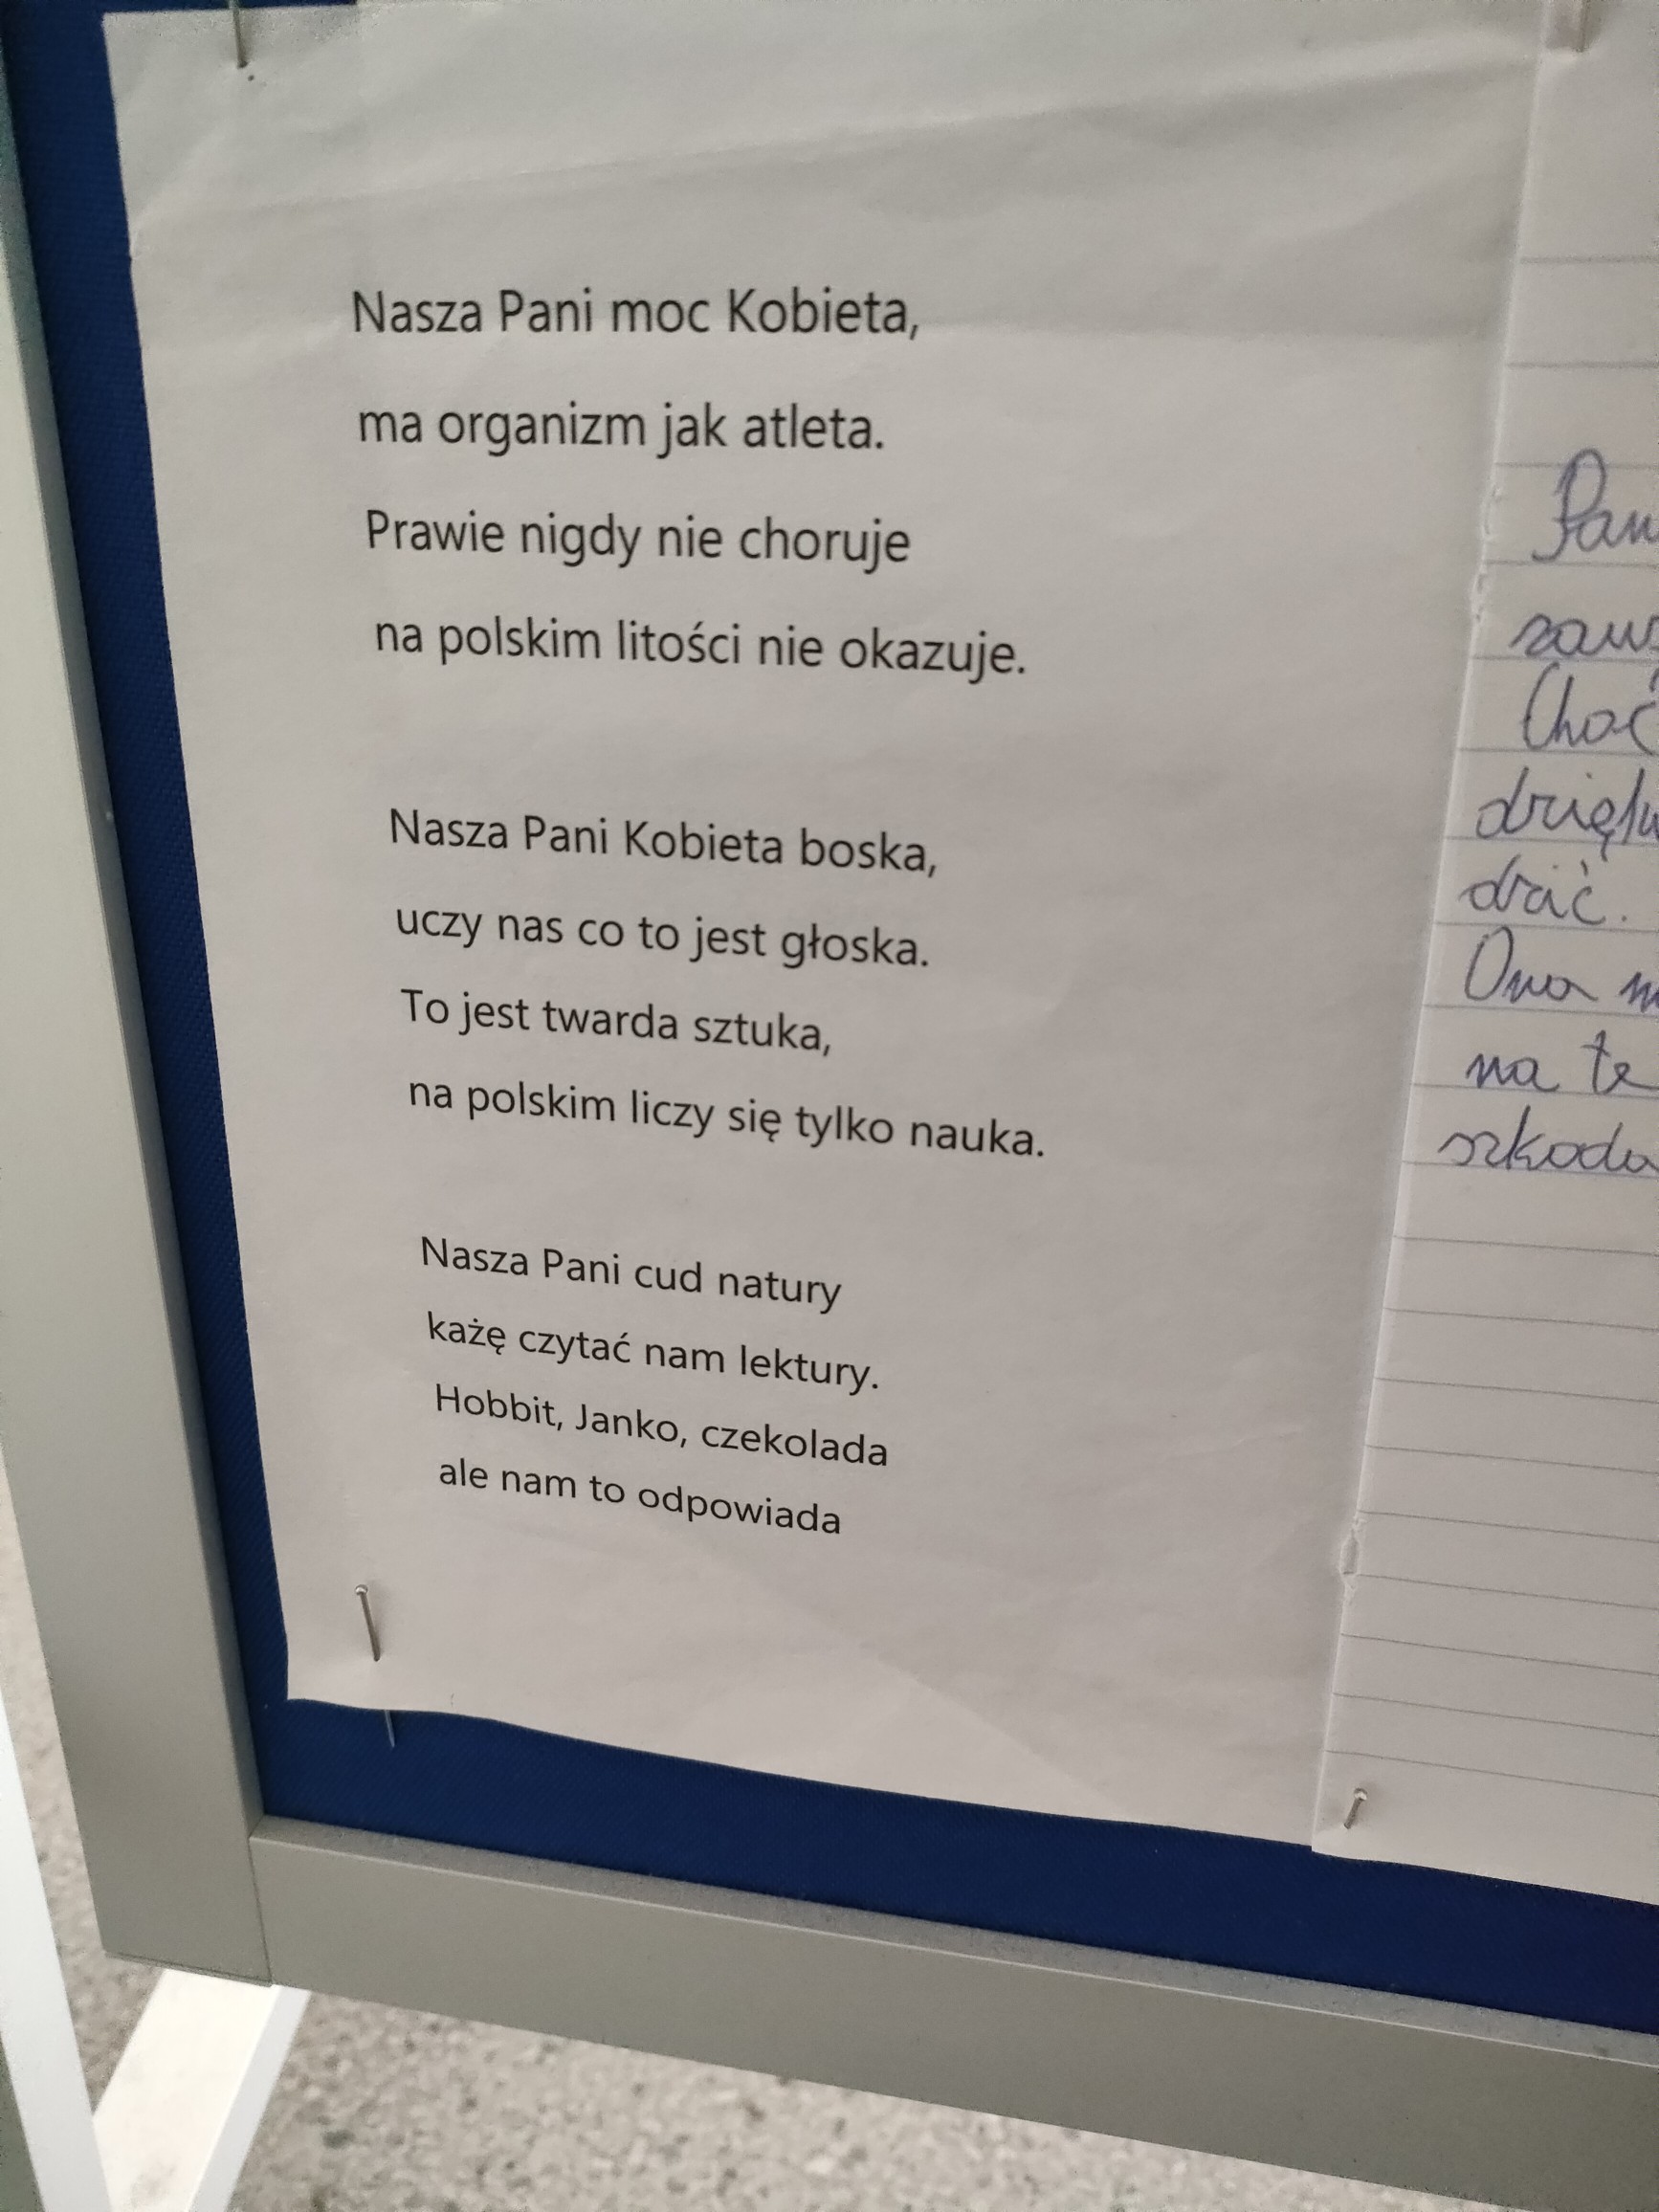 Nasza Pani moc Kobieta,
ma organizm jak atleta.
Prawie nigdy nie choruje
na polskim litości nie okazuje.
Nasza Pani Kobieta boska,
uczy nas co to jest głoska.
To jest twarda sztuka,
na polskim liczy się tylko nauka.
Nasza Pani cud natury
każę czytać nam lektury.
Hobbit, Janko, czekolada
ale nam to odpowiada
Choć
drić.
Ona
na te